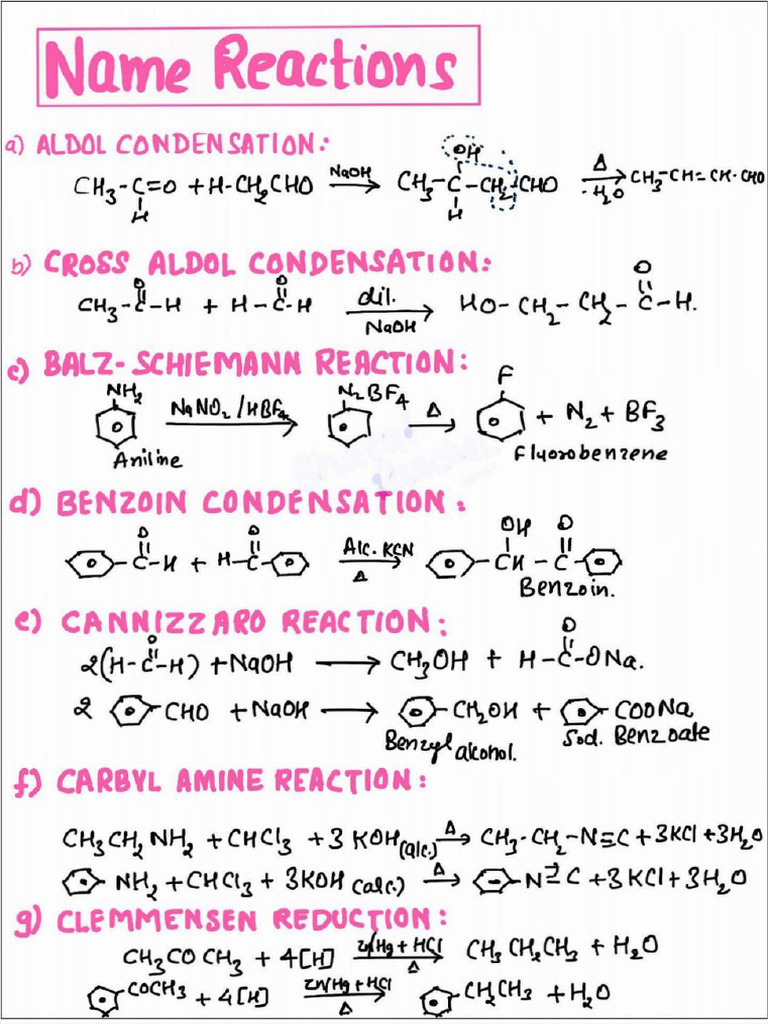 Name Reactions
a) ALDOL CONDENSATION:
CH₃-C=O + H-CH₂CHO NaOH → CH₃-C-CH₂-CHO Δ → CH₃-CH=CH-CHO
H OH H -H₂O
b) CROSS ALDOL CONDENSATION:
O O O
CH₃-C-H + H-C-H dil. NaOH → HO-CH₂-CH₂-C-H.
c) BALZ-SCHIEMANN REACTION:
NH₂ N₂BF₄ F
NaNO₂/HBF₄ → Δ → + N₂ + BF₃
Aniline Fluorobenzene
d) BENZOIN CONDENSATION:
O O OH O
-C-H + H-C- Alc. KCN → Δ -CH-C-
Benzoin.
e) CANNIZZARO REACTION:
O O
2(H-C-H) + NaOH → CH₃OH + H-C-ONa.
2 CHO + NaOH → -CH₂OH + COONa
Benzyl alcohol. Sod. Benzoate
f) CARBYL AMINE REACTION:
CH₃CH₂NH₂ + CHCl₃ + 3KOH(alc.) Δ → CH₃-CH₂-N≡C + 3KCl + 3H₂O
NH₂ + CHCl₃ + 3KOH (alc.) Δ → -N≡C + 3KCl + 3H₂O
g) CLEMMENSEN REDUCTION:
CH₃COCH₃ + 4[H] Zn/Hg + HCl → Δ CH₃CH₂CH₃ + H₂O
COCH₃ + 4[H] Zn/Hg + HCl → Δ CH₂CH₃ + H₂O